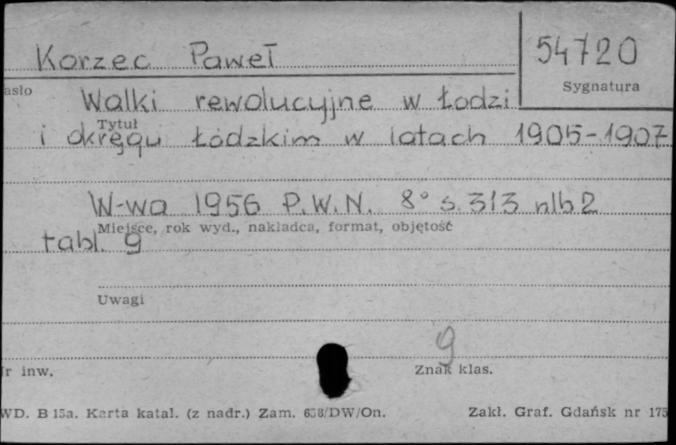 Korzec Paweł
54720
asło
Sygnatura
Walki rewolucyjne w Łodzi
Tytuł
i okręgu Łódzkim w latach 1905-1907
W-wa 1956 P.W.N. 8° s. 313 nlb 2
Miejsce, rok wyd., nakładca, format, objętość
tabl. 9
Uwagi
9
r inw.
Znak klas.
WD. B 15a. Karta katal. (z nadr.) Zam. 658/DW/On.
Zakł. Graf. Gdańsk nr 175